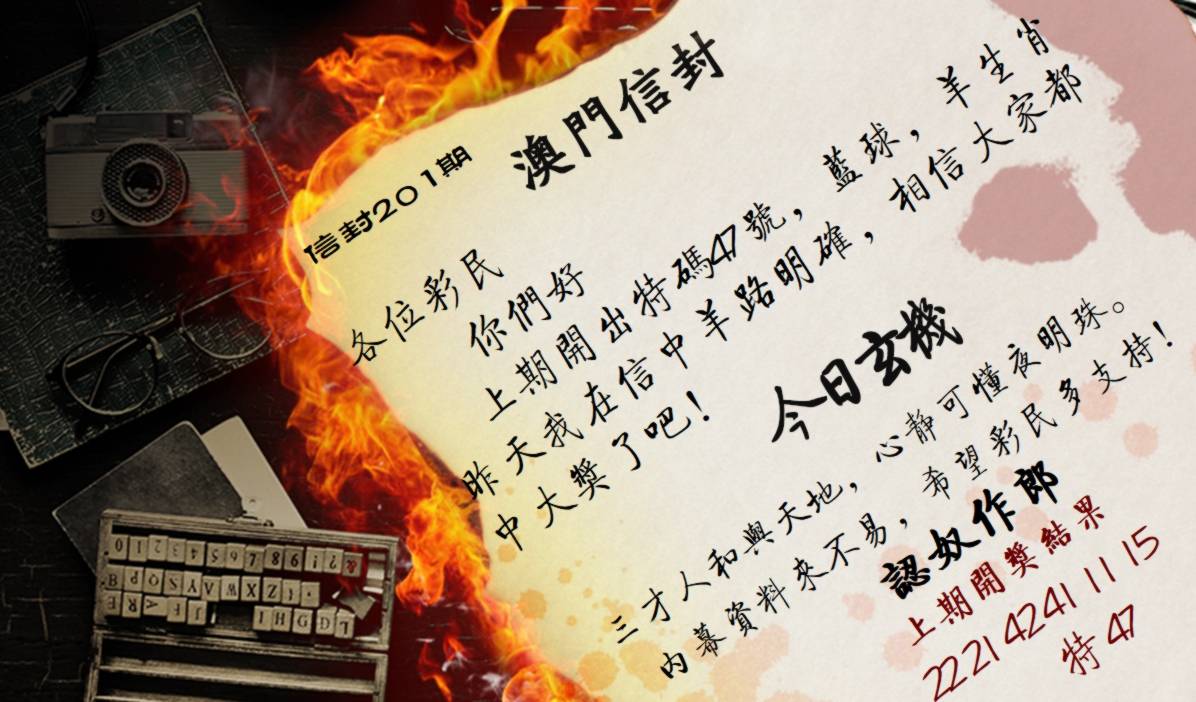 澳門信封
信封201期
各位彩民
你們好
上期開出特碼47號，藍球，羊生肖
昨天我在信中羊路明確，相信大家都
中大獎了吧！
今日玄機
三才人和與天地，心靜可懂夜明珠。
內幕資料來不易，希望彩民多支持！
認奴作郎
上期開獎結果
22 21 42 41 11 15
特 47
0 1 2 3 4 5 6 7 8 9 ! ? &
B P Q S Y A W X Z
E R A F J I H G D L